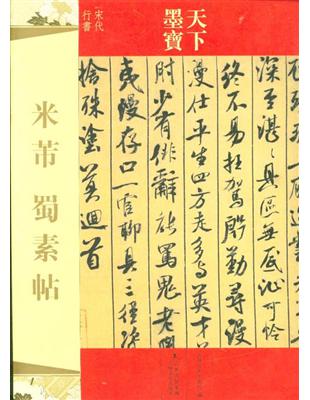 天下
墨寶
宋代
行書
深至湛〻具區無底沚可怜
終不易枉駕殷勤尋漫
漫仕平生四方走多与英才
肘少有俳辭能罵鬼老學
夷漫存口一官聊具三徑
捨殊塗莫迴首
米芾 蜀素帖